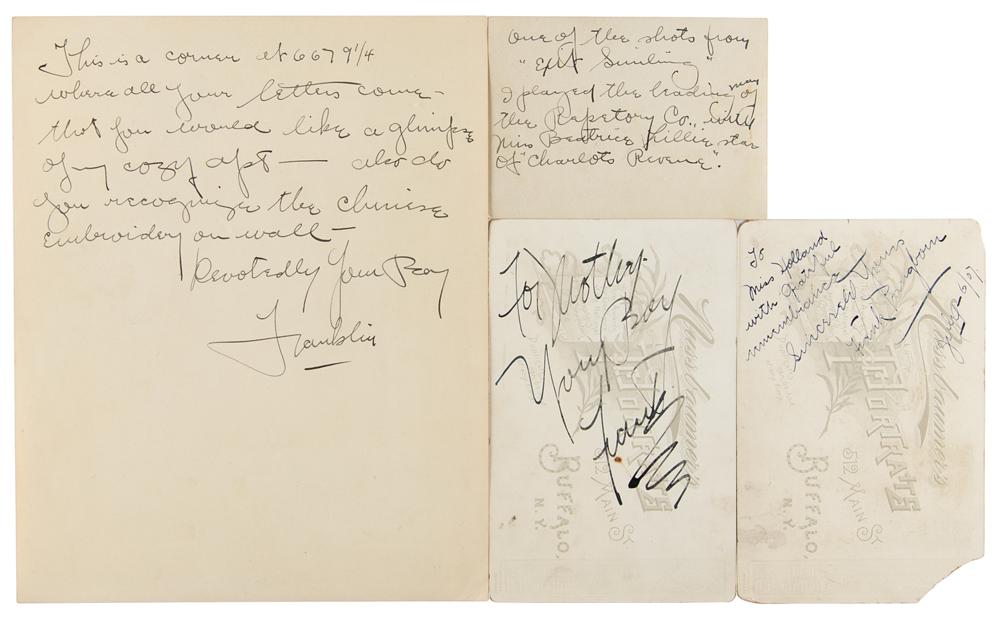 This is a corner at 667 9¼
where all your letters come -
that you would like a glimpse
of my cozy apt — also do
you recognize the chinese
embroidery on wall —
Devotedly Your Boy
Franklin
one of the shots from
"Exit Smiling"
I played the leading man of
the Repetory Co., with
Miss Beatrice Lillie star
of "Charlots Revue".
To Mother
Your Boy
Frank
PORTRAITS
512 MAIN ST
BUFFALO,
N.Y.
To
Miss Holland
with grateful
remembrance
Sincerely Yours
Frank Pangborn
PORTRAITS
512 MAIN ST
BUFFALO,
N.Y.